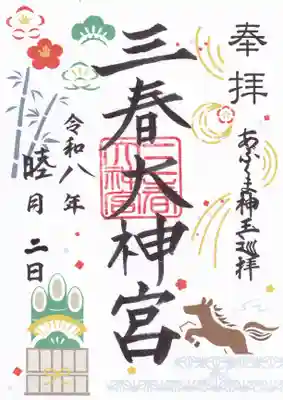 奉拝
あぶくま神玉巡拝
三春大神宮
三春
大神宮
令和八年
睦月二日